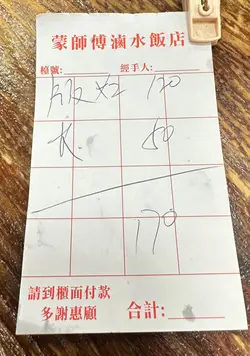 蒙師傅滷水飯店
檯號:________ 經手人:________
飯 120
水. 50
170
請到櫃面付款
多謝惠顧 合計:________